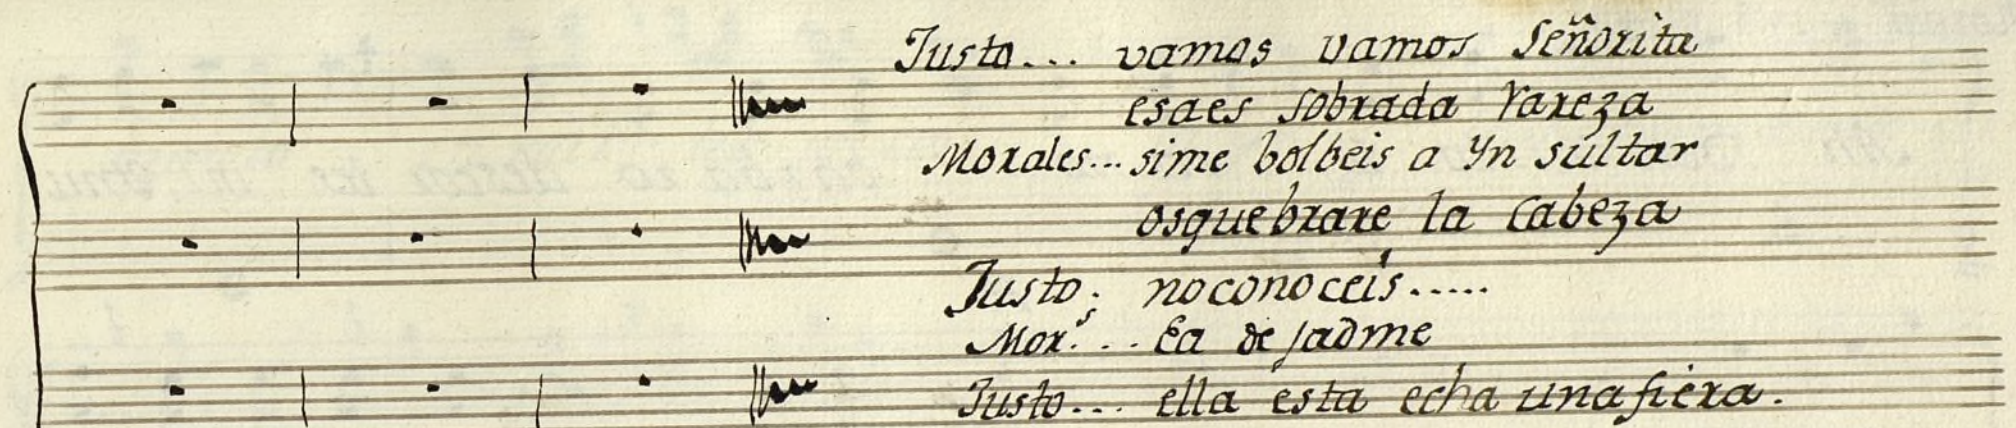 Justo... vamos vamos Señorita
esaes sobrada rareza
Morales... sime bolbeis a Yn sultar
osquebrare la cabeza
Justo. noconoceis.....
Mor.s.. Ea dejadme
Justo... ella esta echa unafiera.